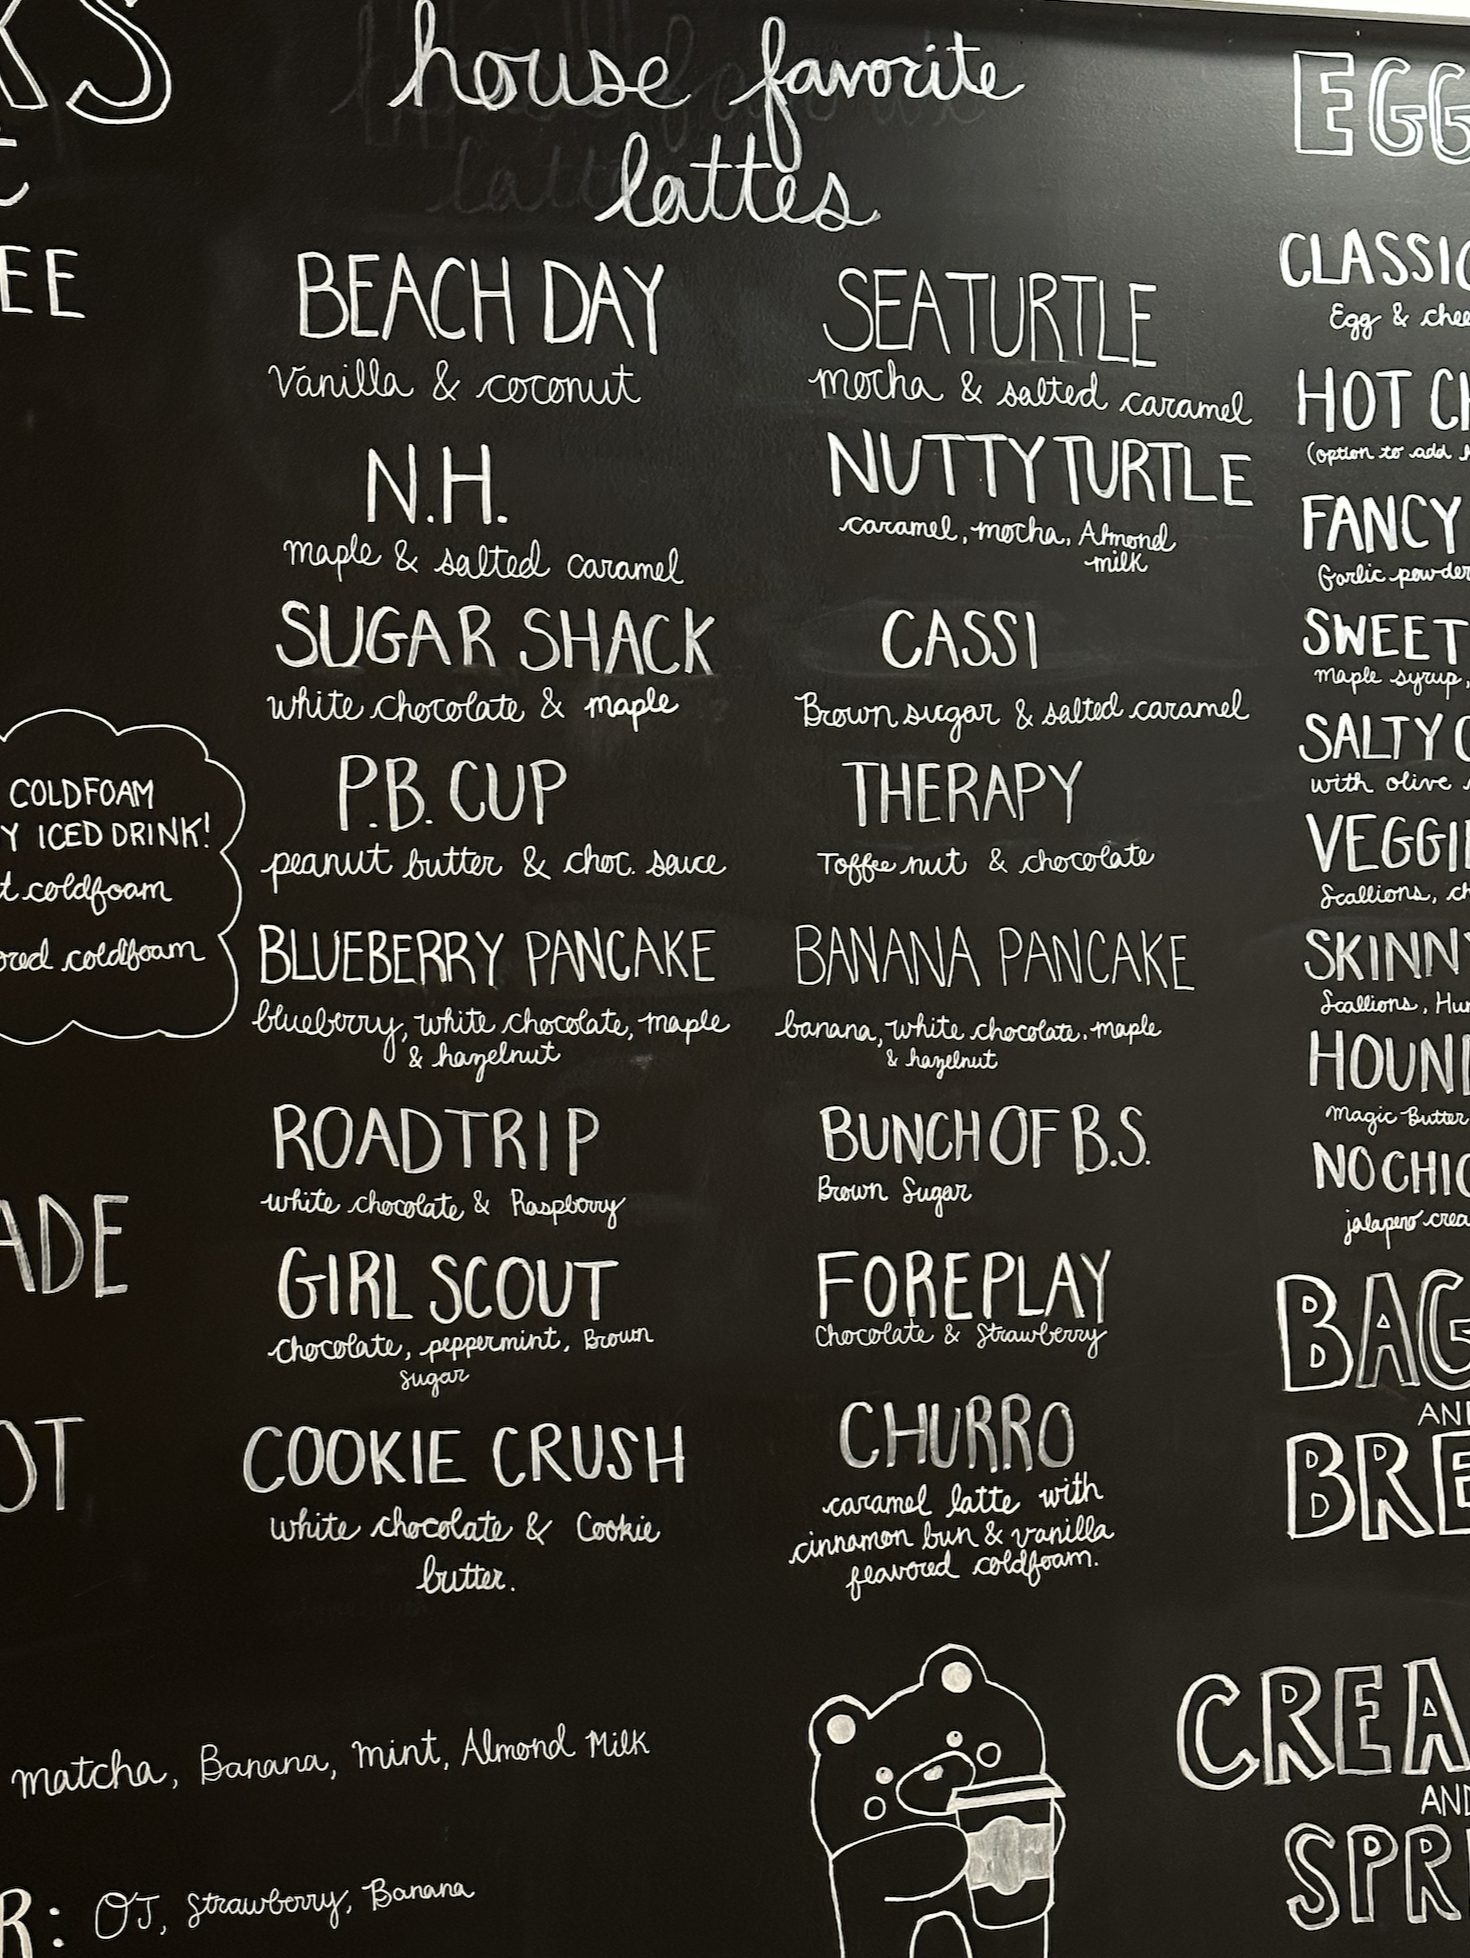 KS
EE
COLDFOAM
Y ICED DRINK!
coldfoam
ored coldfoam
ADE
OT
house favorite
lattes
BEACH DAY
Vanilla & coconut
N.H.
maple & salted caramel
SUGAR SHACK
white chocolate & maple
P.B. CUP
peanut butter & choc. sauce
BLUEBERRY PANCAKE
blueberry, white chocolate, maple
& hazelnut
ROADTRIP
white chocolate & Raspberry
GIRL SCOUT
chocolate, peppermint, Brown
Sugar
COOKIE CRUSH
white chocolate & Cookie
butter.
SEATURTLE
mocha & salted caramel
NUTTY TURTLE
caramel, mocha, Almond
milk
CASSI
Brown sugar & salted caramel
THERAPY
Toffee nut & chocolate
BANANA PANCAKE
banana, white chocolate, maple
& hazelnut
BUNCH OF B.S.
Brown Sugar
FOREPLAY
Chocolate & Strawberry
CHURRO
caramel latte with
cinnamon bun & vanilla
flavored coldfoam.
matcha, Banana, mint, Almond Milk
R: OJ, Strawberry, Banana
EGG
CLASSIC
Egg & chee
HOT CH
(option to add
FANCY
Garlic powder
SWEET
maple syrup,
SALTY
with olive
VEGGIE
Scallions, ch
SKINNY
Scallions, Hum
HOUN
Magic Butter
NO CHIC
jalapeno crea
BAG
AND
BRE
CREA
AND
SPR